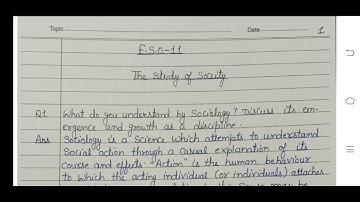 Topic
Date
1
E.S.O-11
The Study of Society
Q1 What do you understand by Sociology? Discuss its em-
ergence and growth as a discipline.
Ans Sociology is a Science which attempts to understand
Social action through a casual explanation of its
course and effects. "Action" is the human behaviour
to which the acting individual (or individuals) attaches